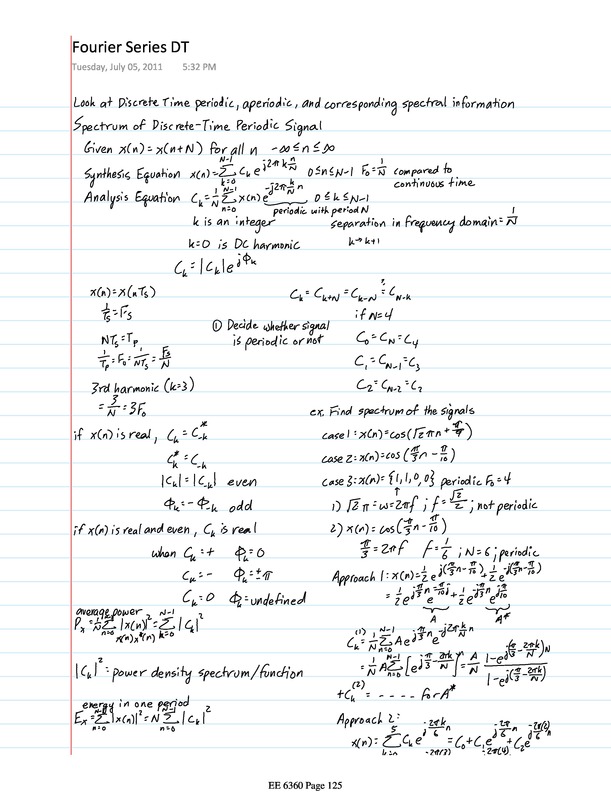 Fourier Series DT
Tuesday, July 05, 2011 5:32 PM
Look at Discrete Time periodic, aperiodic, and corresponding spectral information
Spectrum of Discrete-Time Periodic Signal
Given x(n)=x(n+N) for all n -∞≤n≤∞
Synthesis Equation x(n)=∑_{k=0}^{N-1} C_k e^{j2πk n/N} 0≤n≤N-1 F₀=1/N compared to continuous time
Analysis Equation C_k=1/N ∑_{n=0}^{N-1} x(n)e^{-j2π k/N n} 0≤k≤N-1
periodic with period N
k is an integer separation in frequency domain=1/N
k=0 is DC harmonic k→k+1
C_k=|C_k|e^{jΦ_k}
x(n)=x(nT_s)
1/T_s=F_s
NT_s=T_p
1/T_p=F₀=1/NT_s=F_s/N
3rd harmonic (k=3)
=3/N=3F₀
① Decide whether signal
is periodic or not
C_k=C_{k+N}=C_{k-N}=?C_{N-k}
if N=4
C₀=C_N=C₄
C₁=C_{N-1}=C₃
C₂=C_{N-2}=C₂
if x(n) is real, C_k=C*_{-k}
C*_k=C_{-k}
|C_k|=|C_{-k}| even
Φ_k=-Φ_{-k} odd
if x(n) is real and even, C_k is real
when C_k=+ Φ_k=0
C_k=- Φ_k=±π
C_k=0 Φ_k=undefined
average power
P_x=1/N ∑_{n=0}^{N-1} |x(n)|²=∑_{k=0}^{N-1} |C_k|²
x(n)x*(n)
|C_k|²=power density spectrum/function
energy in one period
E_x=∑_{n=0}^{N-1} |x(n)|²=N∑_{n=0}^{N-1} |C_k|²
ex. Find spectrum of the signals
case 1: x(n)=cos(√2πn+π/9)
case 2: x(n)=cos(π/3 n-π/10)
case 3: x(n)={1,1,0,0} periodic F₀=4
↑
1) √2π=ω=2πf ; f=√2/2 ; not periodic
2) x(n)=cos(π/3 n-π/10)
π/3=2πf f=1/6 ; N=6 ; periodic
Approach 1: x(n)=1/2 e^{j(π/3 n-π/10)}+1/2 e^{-j(π/3 n-π/10)}
=1/2 e^{jπ/3 n}e^{-jπ/10}+1/2 e^{-jπ/3 n}e^{jπ/10}
A A*
C_k^{(1)}=1/N ∑_{n=0}^{N-1} Ae^{jπ/3 n}e^{-j2π k/N n}
=1/N A∑_{n=0}^{N-1} [e^{j(π/3-2πk/N)}]^n=A/N (1-e^{j(π/3-2πk/N)N})/(1-e^{j(π/3-2πk/N)})
+C_k^{(2)}=---- for A*
Approach 2:
x(n)=∑^5 C_k e^{j2πk/6 n}=C₀+C₁e^{j2π/6 n}+C₂e^{j2π(2)/6 n}
EE 6360 Page 125